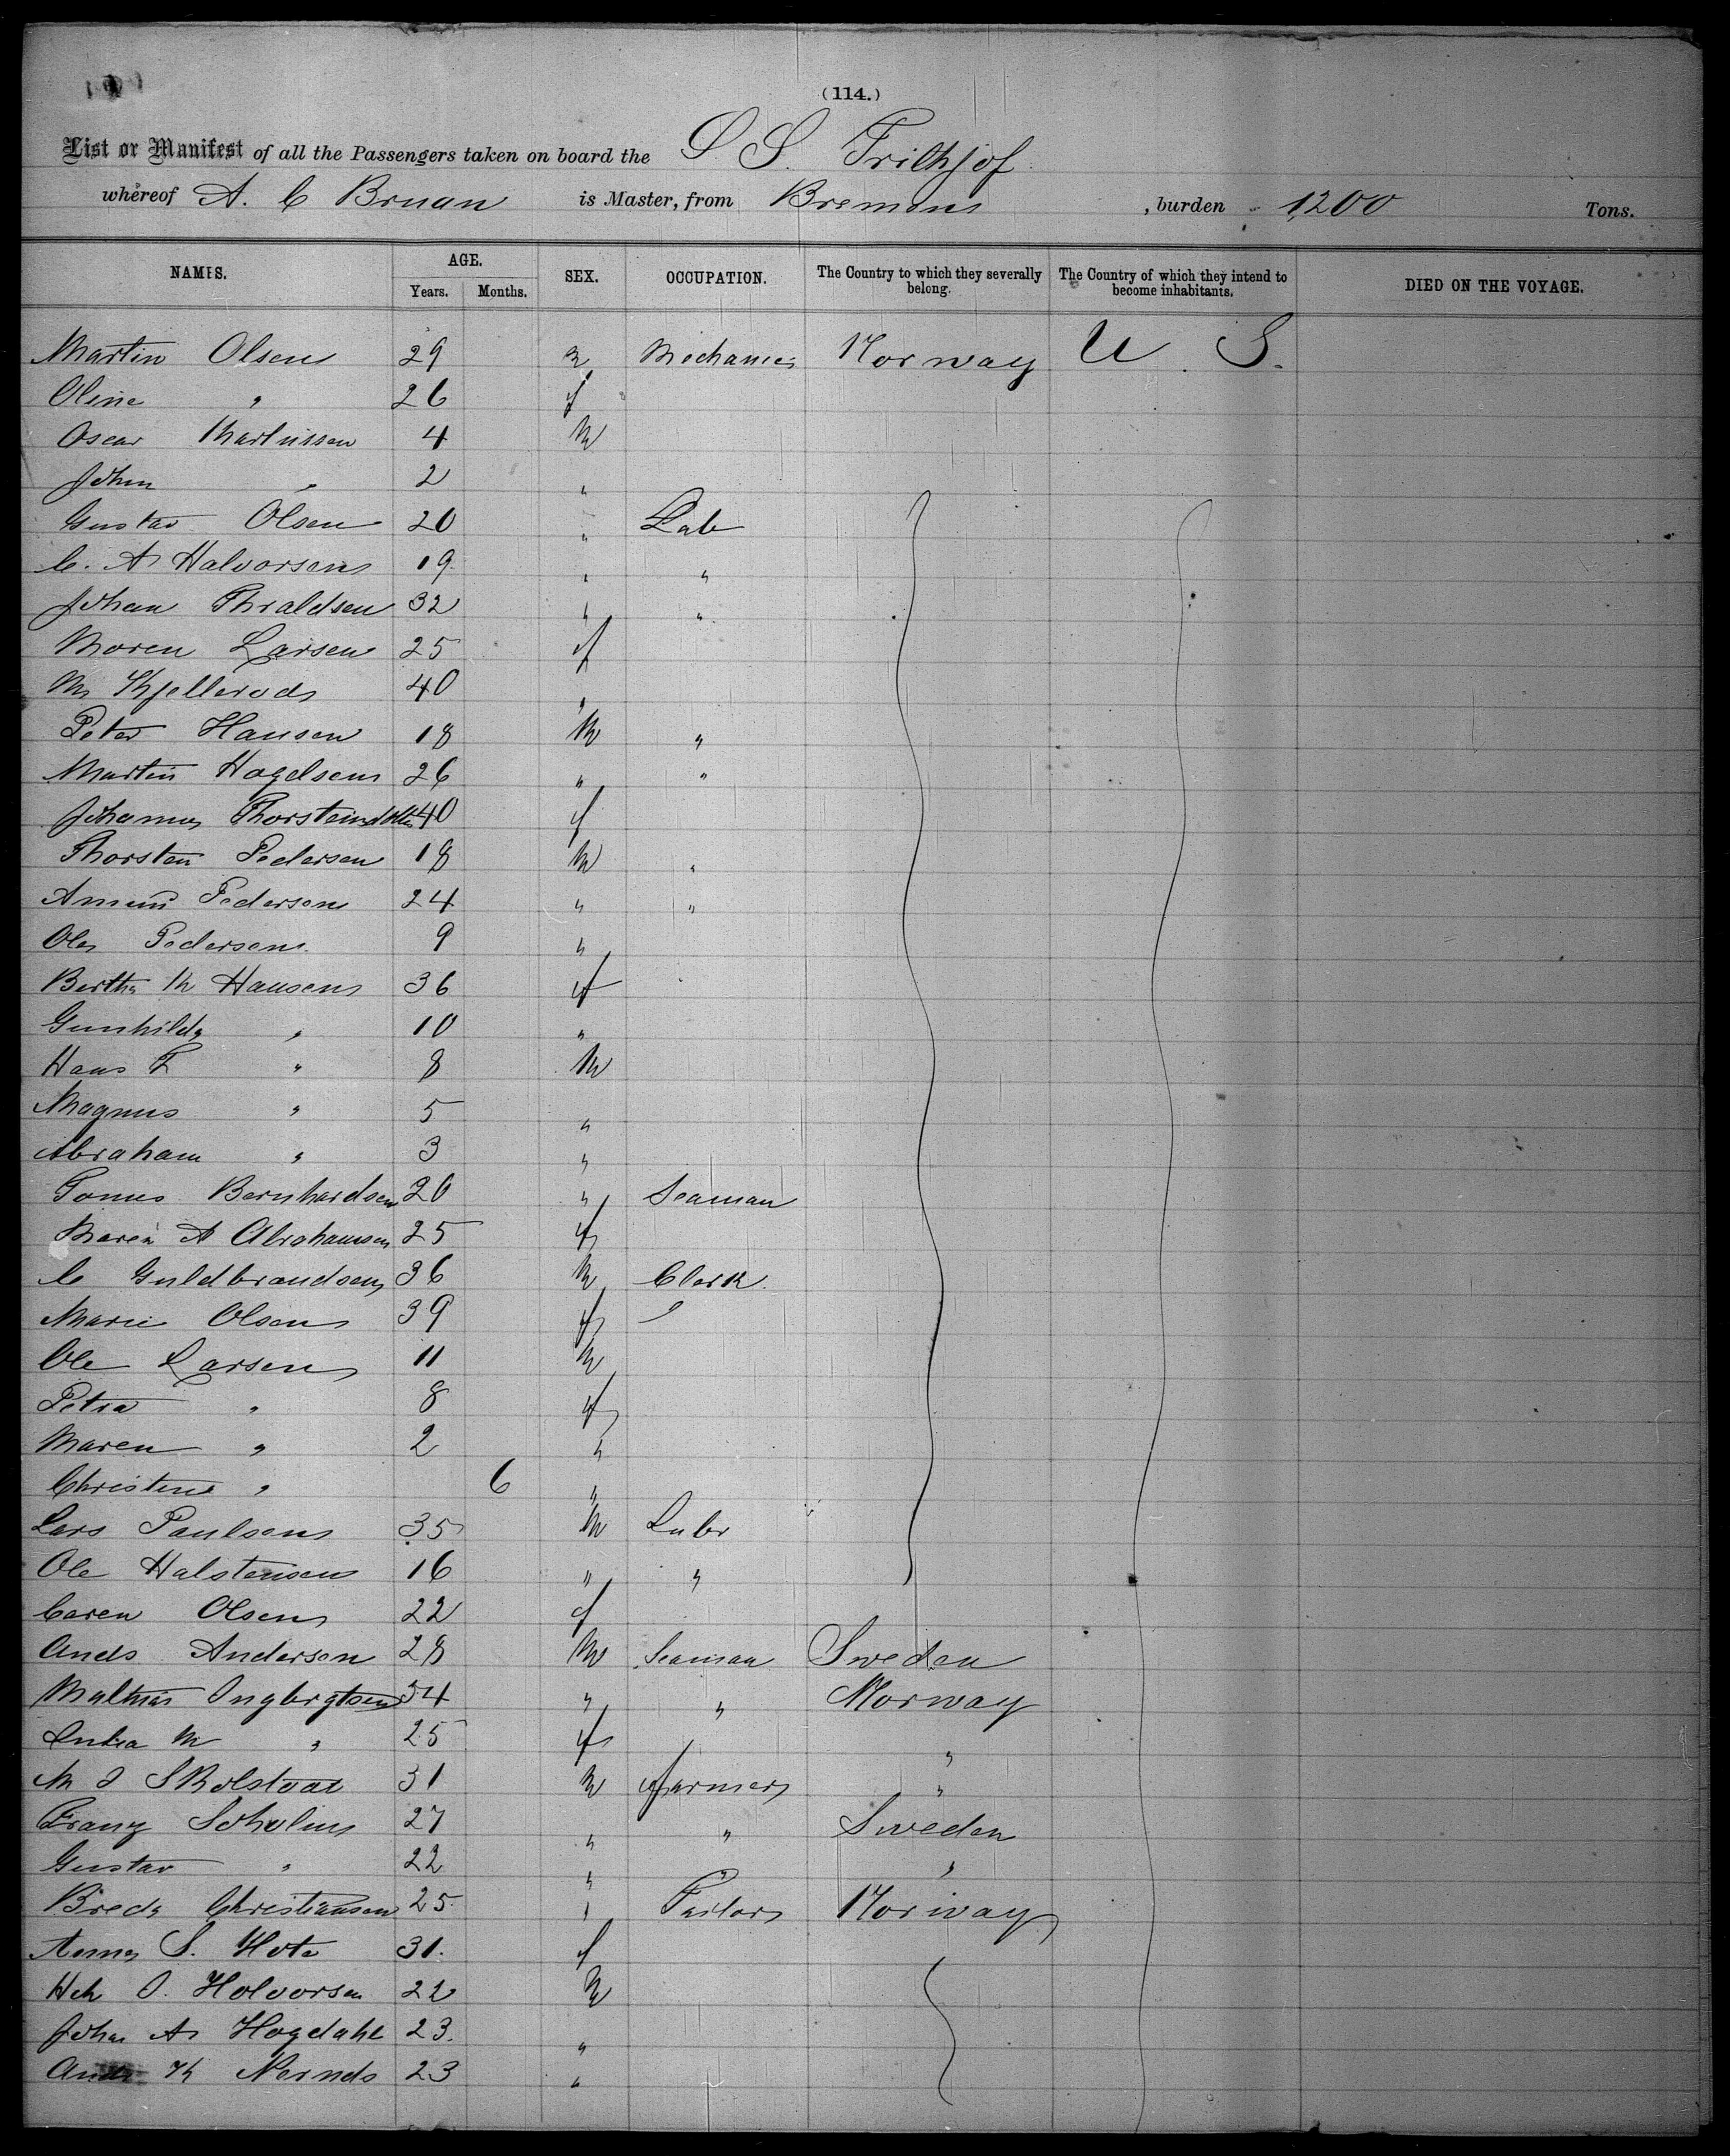 (114.)
List or Manifest of all the Passengers taken on board the S. S. Frithjof
whereof A. C Bruan is Master, from Bremens, burden 1200 Tons.
NAMES. AGE. Years. Months. SEX. OCCUPATION. The Country to which they severally belong. The Country of which they intend to become inhabitants. DIED ON THE VOYAGE.
Martin Olsen 29 m Mechanic Norway U. S.
Oline " 26 f
Oscar Martinssen 4 M
John " 2 "
Gustav Olsen 20 " Lab
C. A Halvorsen 19 " "
Johan Thraldsen 32 " "
Moren Larsen 25 f
M Kjellerods 40 "
Peter Hansen 18 M "
Martin Hagelsen 26 " "
Johanna Thorsteinsdotter 40 f
Thorsten Pedersen 18 M "
Pedersen 24 " "
Ole Pedersen 9 "
Bertha M Hansen 36 f
Gunhilda " 10 "
Hans T " 8 M
Magnus " 5 "
Abraham " 3 "
Bernhardsen 20 " Seaman
Maren A Abrahamsen 25 f
C Guldbrandsen 36 M Clerk.
Marie Olsen 39 f
Ole Larsen 11 M
Petra " 8 f
Maren " 2 "
Christine " 6 "
Lars Paulsen 35 M Labr
Ole Halstensen 16 " "
Caren Olsen 22 f
Ands Andersen 28 M Seaman Sweden
Mathias Ingbrgtsen 54 " " Norway
M " 25 f "
M J 31 M farmer "
Franz Scholin 27 " " Sweden
Gustav " 22 " " "
Breda Christiansen 25 " Tailor Norway
S. Hote 31. f
O. Holvorsen 22 M
Johan A Hogdahl 23. "
K 23 "